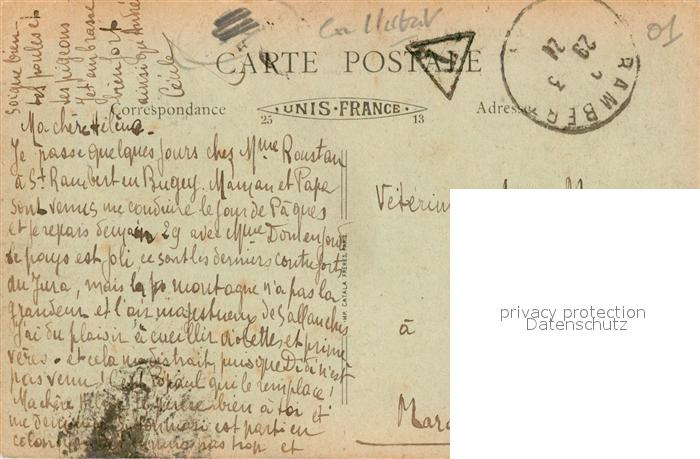 CARTE POSTALE
Correspondance
UNIS-FRANCE
25
13
Adresse
RAMBER
29
3
21
01
Soigne bien
tes poules et
tes pigeons
Je t'embrasse
bien fort
ainsi que André
Cécile
Ma chère Hélène.
Je passe quelques jours chez Mme Roustan
à St Rambert en Bugey. Maman et Papa
sont venus me conduire le jour de Pâques
et je repars demain 29 avec Mme
le pays est joli, ce sont les derniers contreforts
du Jura, mais la montagne n'a pas la
grandeur et l'air majestueux de Sallanches
J'ai du plaisir à cueillir violettes et prime
vères. et cela me distrait puisque Didi n'est
pas venu! C'est qui le remplace!
Ma chère bien à toi et
me est parti en
colon pas trop et
Vétérin
à
Mar
IMP. CATALA FRÈRES, PARIS
privacy protection
Datenschutz